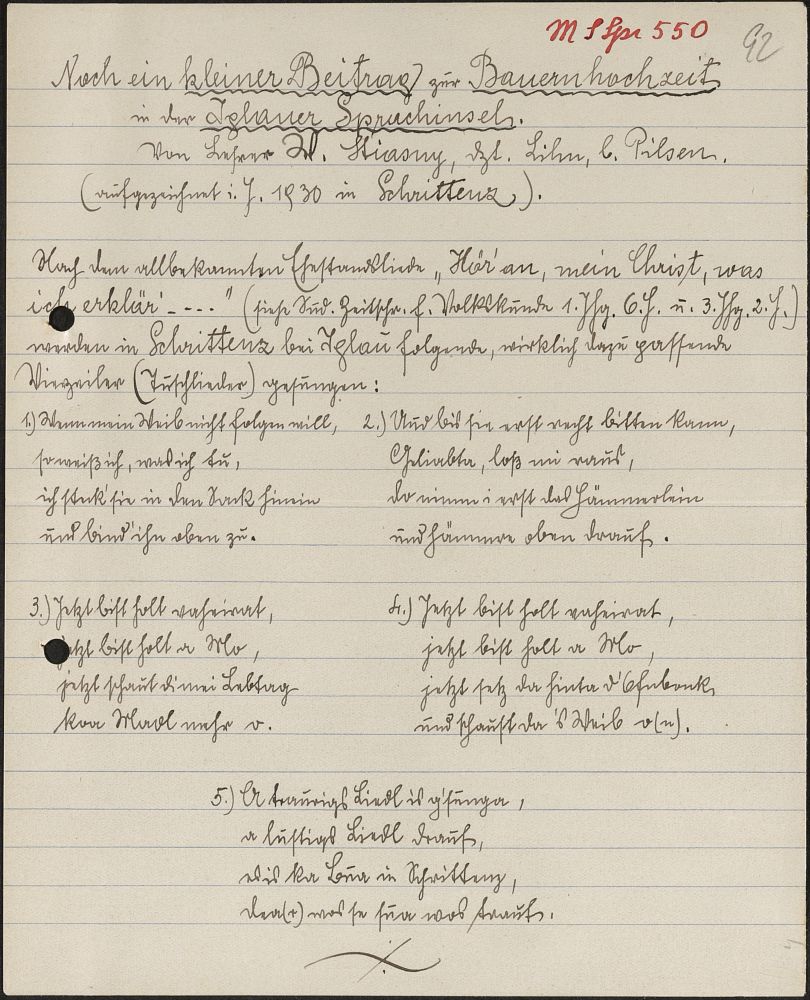 M S Spr 550
92
Noch ein kleiner Beitrag zur Bauernhochzeit
in der Iglauer Sprachinsel.
Von Lehrer W. Stiasny, dzt. Liln, b. Pilsen.
(aufgezeichnet i. J. 1930 in Schrittenz,).
Nach dem allbekannten Ehestandsliede „Hör' an, mein Christ, was
ich erklär' - - .. ." (siehe Sud. Zeitschr. f. Volkskunde 1. Jhg. 6. H. u. 3. Jhg. 2. H.)
werden in Schrittenz bei Iglau folgende, wirklich dazu passende
Vierzeiler (Tuschlieder) gesungen:
1.) Wenn mein Weib nicht folgen will,
so weiß ich, was ich tu,
ich steck' sie in den Sack hinein
und bind' ihn oben zu.
2.) Und bis sie erst recht bitten kann,
Geliabta, loß mi raus,
do nimm i erst das Hämmerlein
und hämmre oben drauf.
3.) Jetzt bist holt vaheirat,
jetzt bist holt a Mo,
jetzt schaut di mei Lebtag
koa Madl mehr o.
4.) Jetzt bist holt vaheirat,
jetzt bist holt a Mo,
jetzt setz da hinta d' Ofnbonk
und schaust da 's Weib o(n).
5.) A traurigs Liedl is g'sunga,
a lustigs Liedl drauf,
es is ka Bua in Schrittenz,
dea(r) wos se füa wos traut.